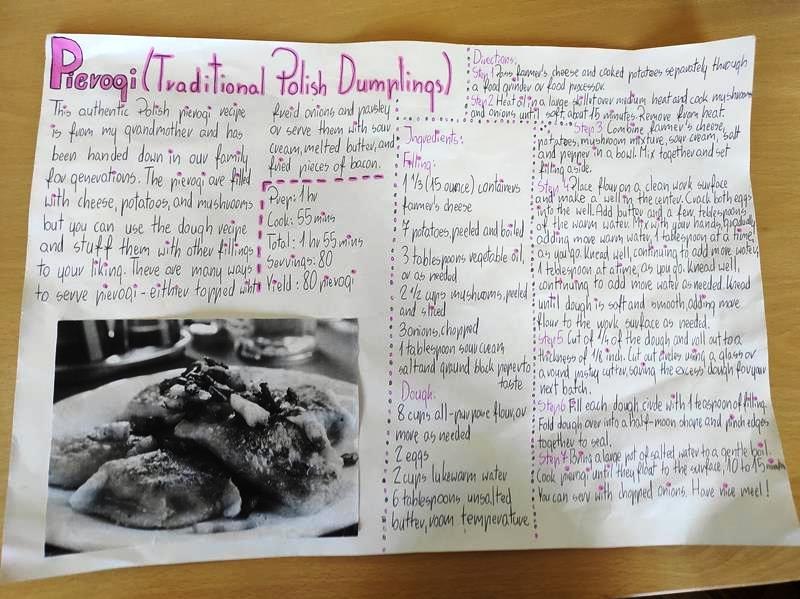 Pierogi (Traditional Polish Dumplings)
This authentic Polish pierogi recipe
is from my grandmother and has
been handed down in our family
for generations. The pierogi are filled
with cheese, potatoes, and mushrooms
but you can use the dough recipe
and stuff them with other fillings
to your liking. There are many ways
to serve pierogi - eithter topped with
frueid onions and parsley
or serve them with sour
cream, melted butter, and
fried pieces of bacon.
Prep: 1 hr
Cook: 55 mins
Total: 1 hr 55 mins
Servings: 80
Yield: 80 pierogi
Ingredients:
Filling:
1 1/3 (15 ounce) containers
farmer's cheese
7 potatoes, peeled and boiled
3 tablespoons vegetable oil,
or as needed
2 1/2 cups mushrooms, peeled
and sliced
3 onions, chopped
1 tablespoon sour cream
salt and ground black peper to
taste
Dough:
8 cups all-purpose flour, or
more as needed
2 eggs
2 cups lukewarm water
6 tablespoons unsalted
butter, room temperature
Directions:
Step 1 Pass farmer's cheese and cooked potatoes separately through
a food grinder or food processor.
Step 2 Heat oil in a large skillet over medium heat and cook mushrooms
and onions until soft, about 15 minutes. Remove from heat.
Step 3 Combine farmer's cheese,
potatoes, mushroom mixture, sour cream, salt
and pepper in a bowl. Mix together and set
filling aside.
Step 4 Place flour on a clean work surface
and make a well in the center. Crack both eggs
into the well. Add butter and a few tablespoons
of the warm water. Mix with your hands, gradually
adding more warm water, 1 tablespoon at a time,
as you go. Knead well, continuing to add more water,
1 tablespoon at a time, as you go. Knead well,
continuing to add more water as needed. Knead
until dough is soft and smooth, adding more
flour to the work surface as needed.
Step 5 Cut of 1/4 of the dough and roll out to a
thickness of 1/8 inch. Cut out circles using a glass or
a round pastry cutter, saving the excess dough for your
next batch.
Step 6 Fill each dough circle with 1 teaspoon of filling.
Fold dough over into a half-moon shape and pinch edges
together to seal.
Step 7 Bring a large pot of salted water to a gentle boil.
Cook pierogi until they float to the surface, 10 to 15 minutes
You can serv with chopped onions. Have nice meel!